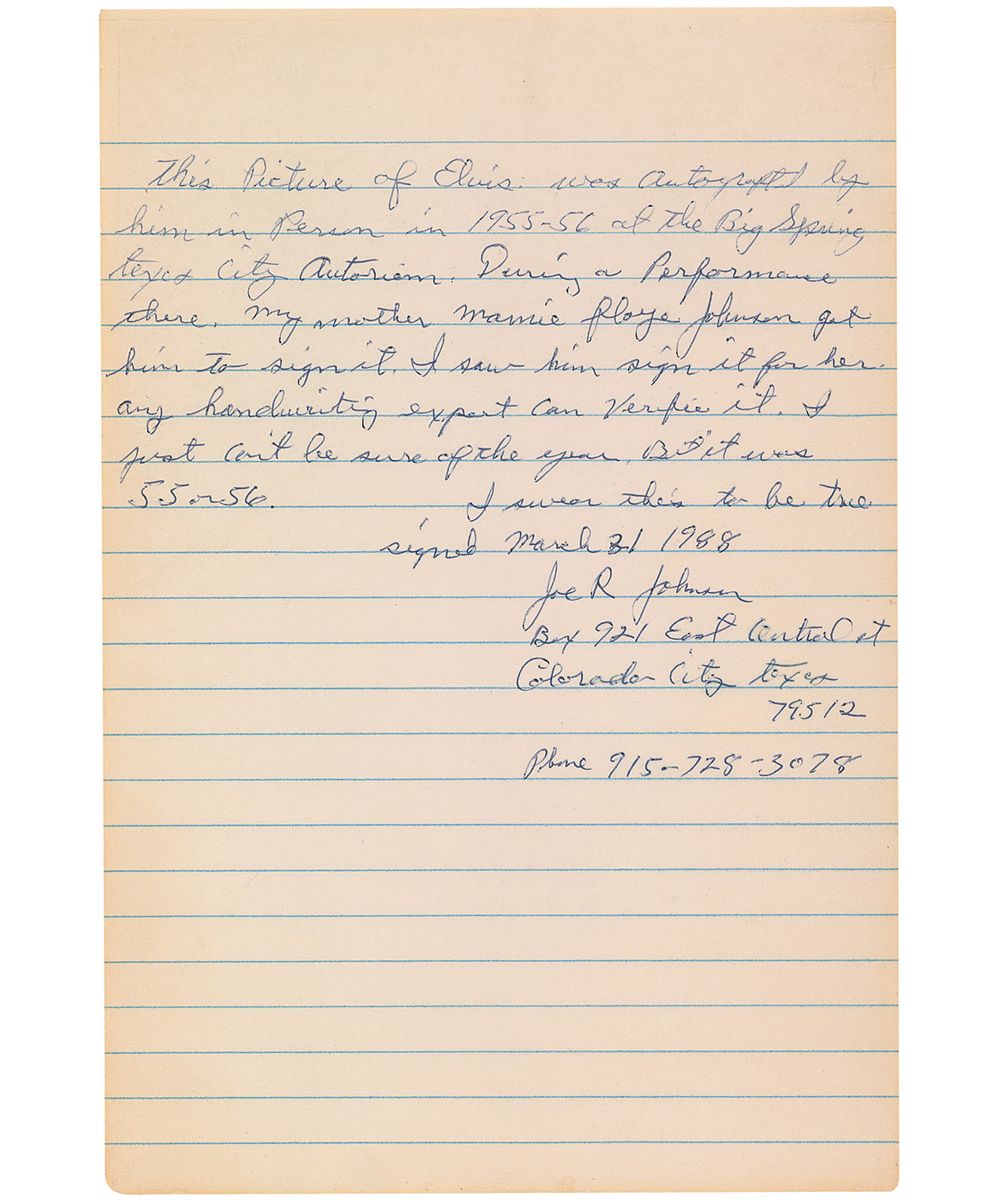 this Picture of Elvis. was Autograpft by
him in Person in 1955-56 at the Big Spring
texas City Autoriem. During a Performance
there. My mother Mamie floye Johnson got
him to sign it. I saw him sign it for her.
any handwriting expert can Verifie it. I
just can't be sure of the year. But it was
55 or 56. I swear this to be true
signed March 31 1988
Joe R Johnson
Box 921 East Central st
Colorado City texas
79512
Phone 915-728-3078